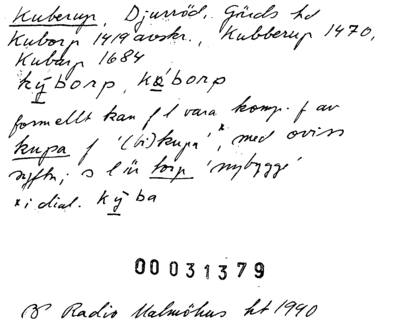 Kuberup, Djurröd, Gärds hd
Kuborp 1419 avskr., Kubberup 1470,
Kubarp 1684
kýborp, køborp
formellt kan f l vara komp. f av
kupa f '(bi)kupa'*, med oviss
syftn; s l är torp 'nybygge'
* i dial. kýba
00031379
Radio Malmöhus ht 1990